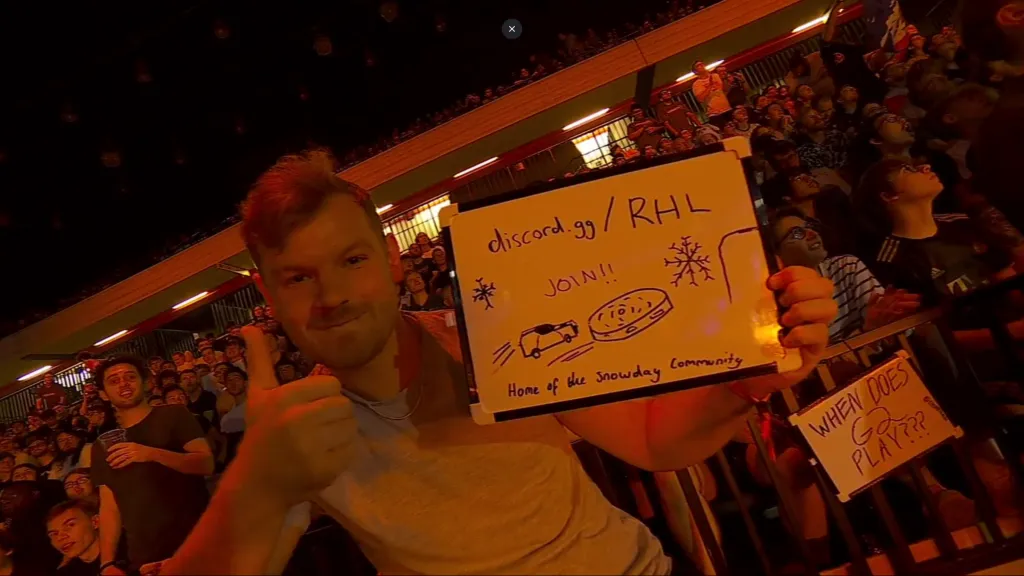 discord.gg/RHL
JOIN!!
Home of the Snowday Community
WHEN DOES
G2
PLAY???